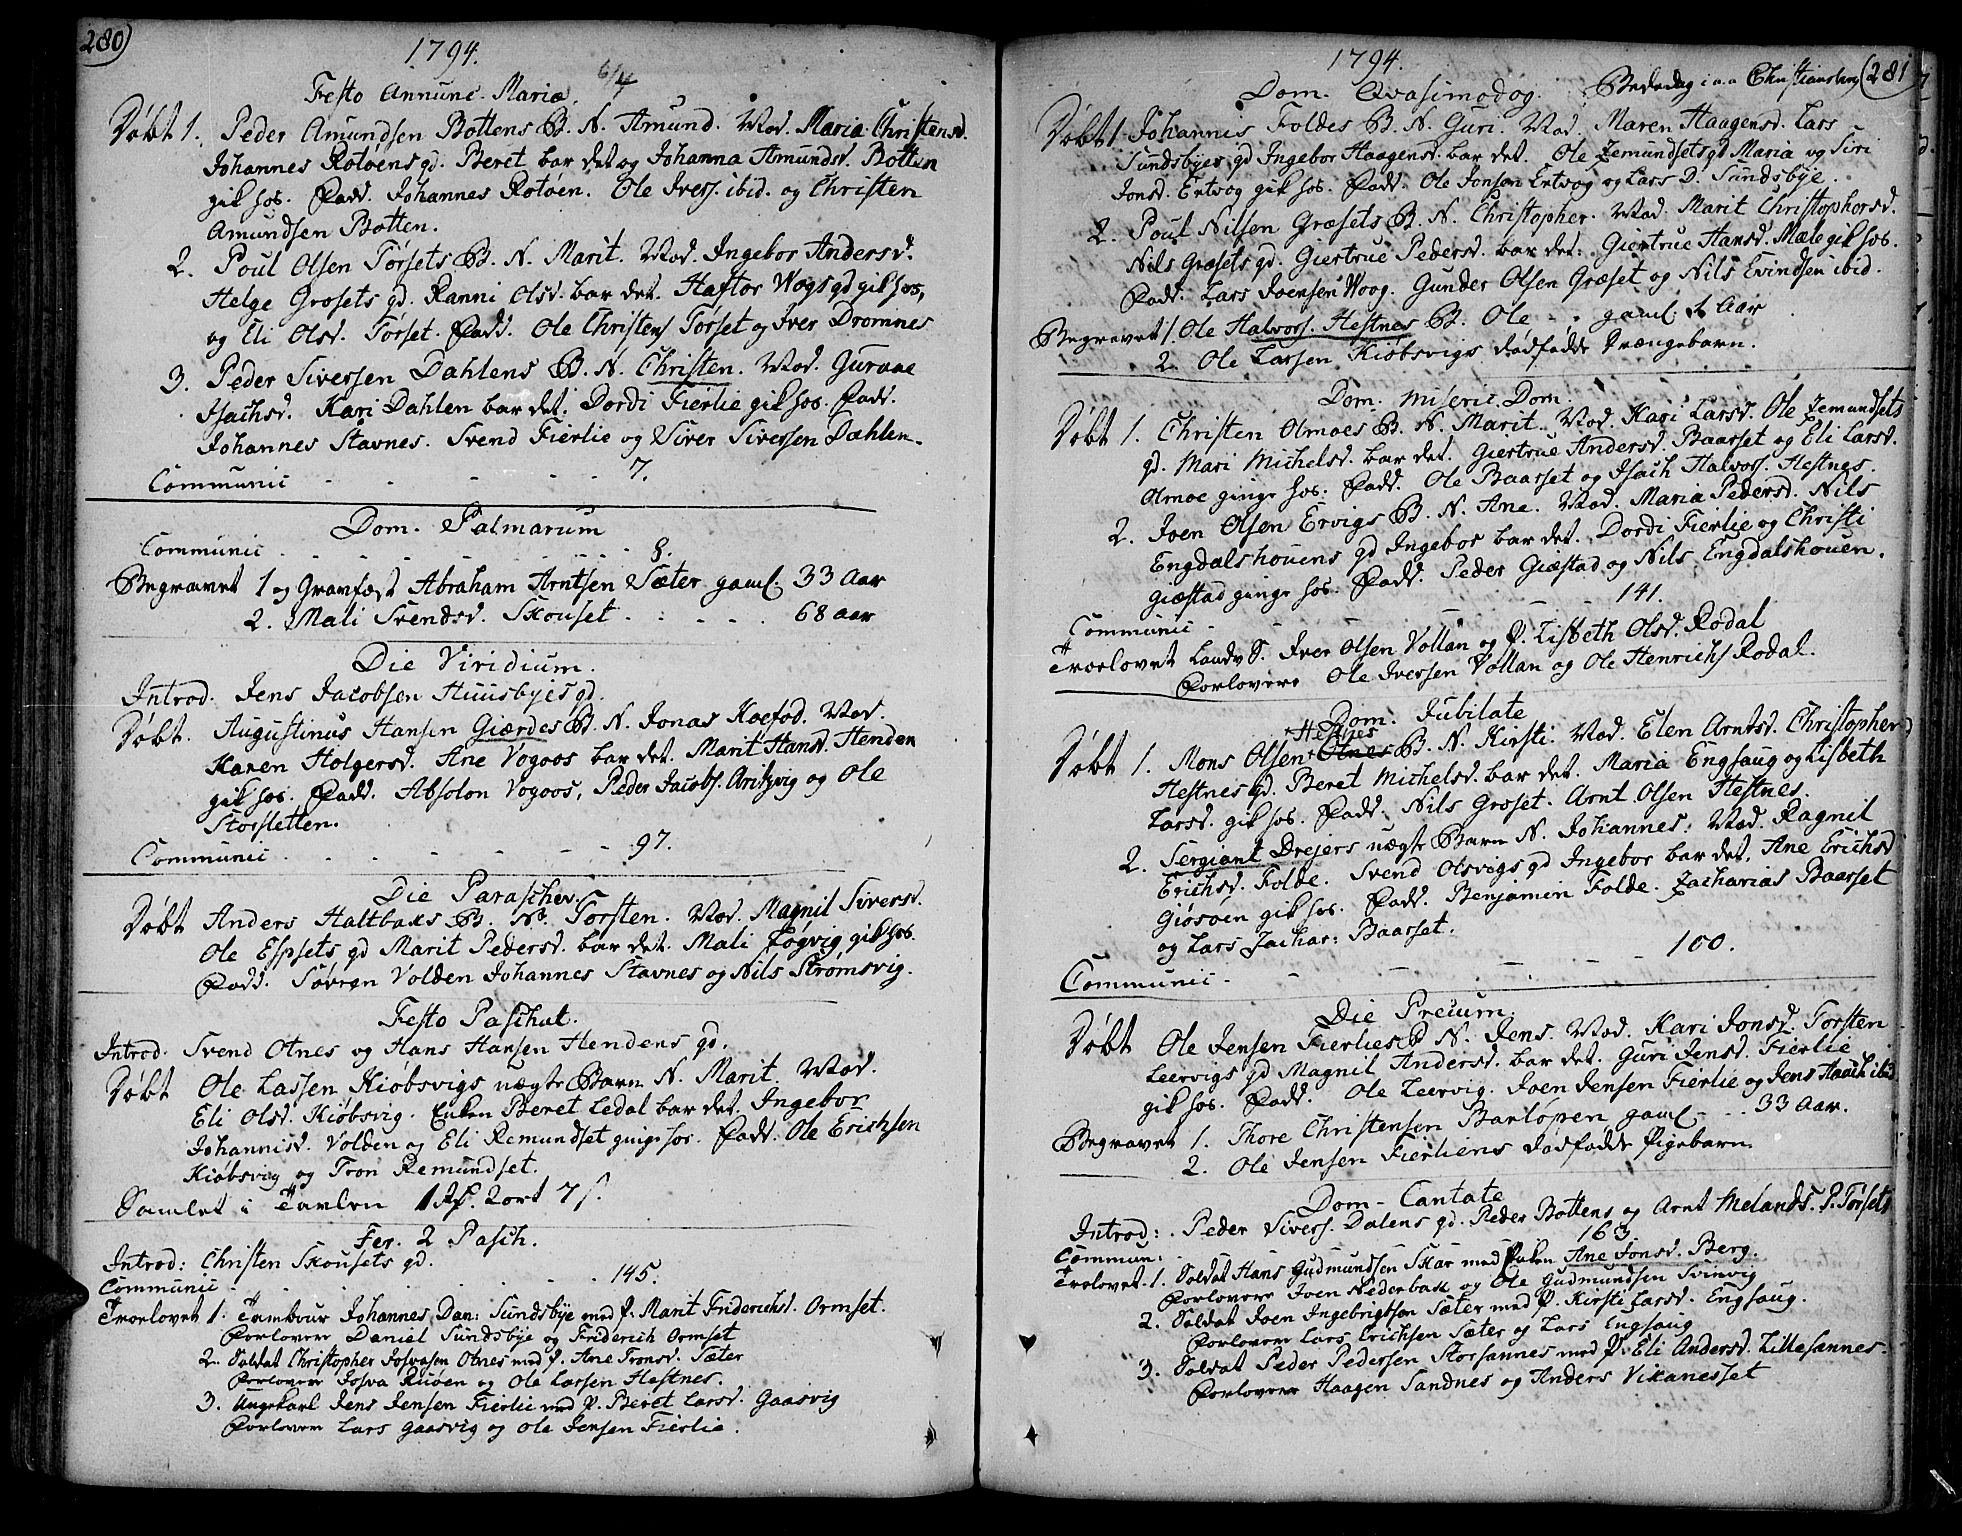 280)
1794.
Festo Annunc. Mariæ. 6/4
Døbt 1. Peder Amundsen Bottens B. N. Amund. Mod. Maria Christensd.
Johannes Rotøens gd. Beret bar det og Johanna Amundsd. Botten
gik hos. Fadd. Johannes Rotøen. Ole Ivers. ibid. og Christen
Amundsen Botten.
2. Poul Olsen Torsets B. N. Marit. Mod. Ingebor Andersd.
Helge Grosets gd. Ranni Olsd. bar det. Haftor Wogs gd gik hos,
og Eli Olsd. Torset. Fadd. Ole Christens Torset og Iver Dromnes
3. Peder Siversen Dahlens B. N. Christen. Mod. Guruae
Isachsd. Kari Dahlen bar det. Dordi Fierlie gik hos. Fadd.
Johannes Stavnes. Svend Fierlie og Siver Siversen Dahlen.
Communic - - - - 7.
Dom. Palmarum
Communic . - - - - 8.
Begravet 1 og Gravfæst Abraham Arntsen Sæter gaml. 33 Aar
2. Mali Svendsd. Skouset . . . . 68 aar
Die Viridium.
Introd. Jens Jacobsen Huusbyes gd.
Døbt. Augustinus Hansen Giærdes B. N. Jonas Koefod. Mod.
Karen Holgersd. Ane Vogoos bar det. Marit Hansd. Henden
gik hos. Fadd. Absolon Vogoos, Peder Jacobs. and Ole
Storsletten.
Communic . - - - - 97.
Die Parasceves
Døbt Anders Haltbaks B. N. Torsten. Mod. Magnil Siversd.
Ole Espsets gd Marit Pedersd. bar det. Mali Fogvig gik hos.
Fadd. Søvren Volden Johannes Stavnes og Nils Strømsvig.
Festo Paschat.
Introd. Svend Otnes og Hans Hansen Hendens gd.
Døbt Ole Lassen Kiøbsvigs uægte Barn N. Marit Mod.
Eli Olsd. Kiøbsvig. Enken Beret Ledal bar det. Ingebor
Johannisd. Volden og Eli Remundset ginge hos. Fadd. Ole Erichsen
Kiøbsvig og Tron Remundset.
Samlet i Tavlen 1 Rd. 2 ort 7 s.
Fer. 2 Pasch.
Introd: Christen Skousets gd.
Communic . - - - - 145.
Trorlovet 1. Tambour Johannes Dan: Sundsbye med P. Marit Friderichsd. Ormset.
Forlovere Daniel Sundsbye og Friderich Ormset
2. Soldat Christopher Josvasen Otnes med P. Ane Tronsd. Sæter
Forlovere Josva Ruøen og Ole Larsen Hestnes.
3. Ungekarl Jens Jensen Fierlie med P. Beret Larsd. Gaasvig
Forlovere Lars Gaasvig og Ole Jensen Fierlie.
(281
1794.
Dom. Qvasimodog. Bededag i a.a Christiansberg
Døbt 1 Johannis Foldes B. N. Guri. Mod. Maren Haagensd. Lars
Sundsbyes gd Ingebor Haagensd. bar det. Ole Jemundsets gd Maria og Siri
Jonsd. Ertvog gik hos. Fadd. Ole Jonsen Ertvog og Lars D. Sundsbye.
2. Poul Nilsen Græsets B. N. Christopher. Mod. Marit Christophersd.
Nils Græsets gd. Giertrue Pedersd. bar det. Giertrue Hansd. Mæle gik hos.
Fadd. Lars Joensen Woog. Gunder Olsen Græset og Nils Evindsen ibid.
Begravet 1. Ole Halvors. Hestnes B. Ole - - gaml. Aar
2. Ole Larsen Kiøbsvigs dødfødde Drængebarn.
Dom. Miseric Dom.
Døbt 1. Christen Olmoes B. N. Marit. Mod. Kari Larsd. Ole Jemundsets
gd. Mari Michelsd. bar det. Giertrue Andersd. Baarset og Eli Larsd.
Olmoe ginge hos. Fadd. Ole Baarset og Isach Halvors. Hestnes.
2. Joen Olsen Ervigs B. N. Ane. Mod. Maria Pedersd. Nils
Engdalshouens gd Ingebor bar det. Dordi Fierlie og Christi
Giæstad ginge hos. Fadd. Peder Giæstad og Nils Engdalshouen.
Communic . - - - - 141.
Trorlovet Landv S. Iver Olsen Vollan og P. Lisbeth Olsd. Rodal
Forlovere Ole Iversen Vollan og Ole Henrichs Rodal.
Dom. Jubilate
Hestnes
Døbt 1. Mons Olsen Otnes B. N. Kirsti. Mod. Elen Arntsd. Christopher
Hestnes gd. Beret Michelsd. bar det. Maria Engsaug og Lisbeth
Larsd. gik hos. Fadd. Nils Groset. Arnt Olsen Hestnes.
2. Sergiant Drejers uægte Barn N. Johannes. Mod. Ragnil
Erichsd. Folde. Svend Olsvigs gd Ingebor bar det. Ane Erichsd
Giøsøen gik hos. Fadd. Benjamin Folde. Zacharias Baarset
og Lars Zachar: Baarset.
Communic. - - - - 100.
Die Precum.
Døbt Ole Jensen Fierlies B N. Jens. Mod. Kari Jonsd. Torsten
Leervigs gd Magnil Andersd. bar det. Guri Jensd. Fierlie
gik hos. Fadd. Ole Leervig. Joen Jensen Fierlie og Jens Haach ibid
Begravet 1. Thore Christensen Barlopen gaml - . . 33 Aar.
2. Ole Jensen Fierliens dødfødde Pigebarn.
Dom - Cantate
Introd: . Peder Sivers. Dalens gd. Peder Bottens og Arnt Melands. P. Torsets
Commun: 163
Trorlovet. 1. Soldat Hans Gudmundsen Skar med Enken Ane Jonsd. Berg.
Forlovere Joen Nederbak og Ole Gudmundsen Svinvig
2. Soldat Joen Ingebrigtsen Sæter med P. Kirsti Larsd. Engsaug.
Forlovere Lars Erichsen Sæter og Lars Engsaug
3. Soldat Peder Pedersen Storsannes med P. Eli Andersd. Lillesannes.
Forlovere Haagen Sandnes og Anders Vikanesset